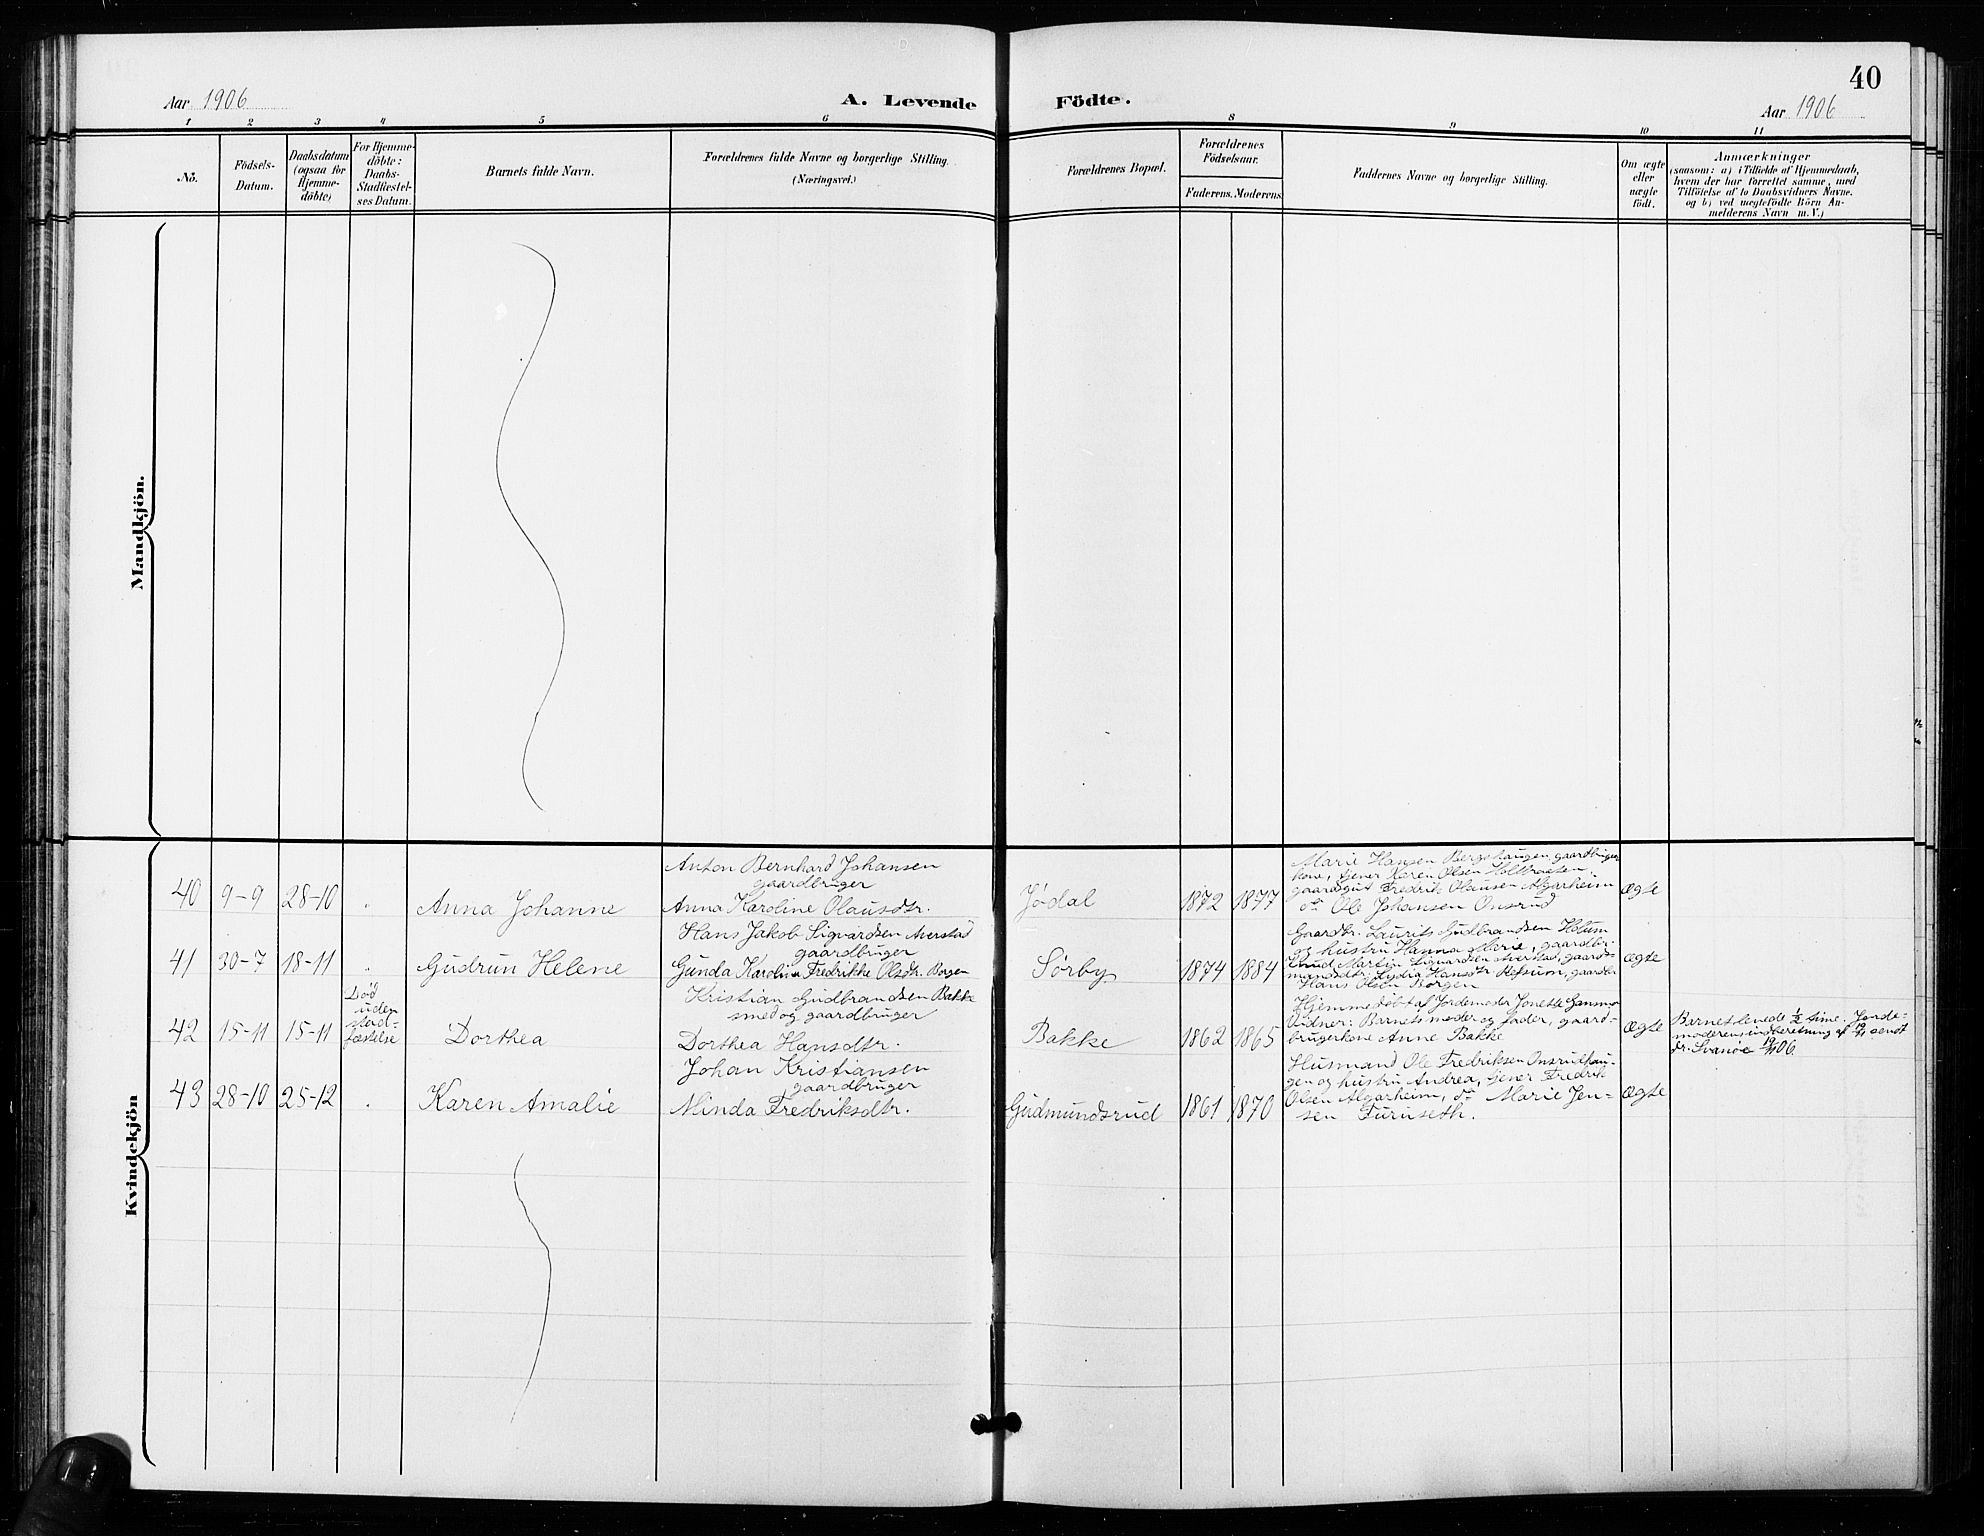 40
Aar 1906
A. Levende Födte.
Aar 1906
1 2 3 4 5 6 8 9 10 11
No.
Födsels-
Datum.
Daabsdatum
(ogsaa for
Hjemme-
döbte)
For Hjemme-
döbte:
Daabs-
Stadfæstel-
ses Datum.
Barnets fulde Navn.
Forældrenes fulde Navne og borgerlige Stilling.
(Næringsvei.)
Forældrenes Bopæl.
Forældrenes
Födselsaar.
Faderens. Moderens.
Faddernes Navne og borgerlige Stilling.
Om ægte
eller
uægte
födt.
Anmærkninger
(saasom: a) i Tilfælde af Hjemmedaab,
hvem der har forrettet samme, med
Tilföielse af to Daabsvidners Navne.
og b) ved uægtefödte Börn An-
melderens Navn m. V.)
Mandkjön.
Kvindekjön
40 9-9 28-10 "
Anna Johanne
Anton Bernhard Johansen
gaardbruger
Anna Karoline Olausdtr.
Jødal
1872 1877
Marie Hansen Bergshaugen, gaardbruger
kone, tjener Karen Olsen Holtbraaten,
gaardsgut Fredrik Olausen Algarheim
do Ole Johansen Onsrud
Ægte
41 30-7 18-11 "
Gudrun Helene
Hans Jakob Sigvardsen Averstad
gaardbruger
Gunda Karolina Fredrikke Olsdtr. Borgen
Sørby
1874 1884
Gaardbr. Laurits Gudbrandsen Holum
og hustru Hanna Marie, gaardbr.
Martin Sigvardsen Averstad, gaard-
mandsdtr. Lydia Hansdtr. Refsum, gaardbr.
Hans Olsen Borgen
Ægte
42 15-11 15-11
Død
uden
stad-
fæstelse
Dorthea
Kristian Gudbrandsen Bakke
smed og gaardbruger
Dorthea Hansdtr.
Bakke
1862 1865
Hjemmedøbt af Jordemoder Jonette Gansmo
Vidner: Barnets moder og fader, gaard-
brugerkone Anne Bakke
Ægte
Barnet levede 1/2 time. Jorde-
moderens indberetning af 19/11 sendt
dr. Svanøe 19/11 06.
43 28-10 25-12 "
Karen Amalie
Johan Kristiansen
gaardbruger
Minda Fredriksdtr.
Gudmundsrud
1861 1870
Husmand Ole Fredriksen Onsrudhau-
gen og hustru Andrea, tjener Fredrik
Olsen Algarheim, do Marie Jen-
sen Furuseth.
Ægte